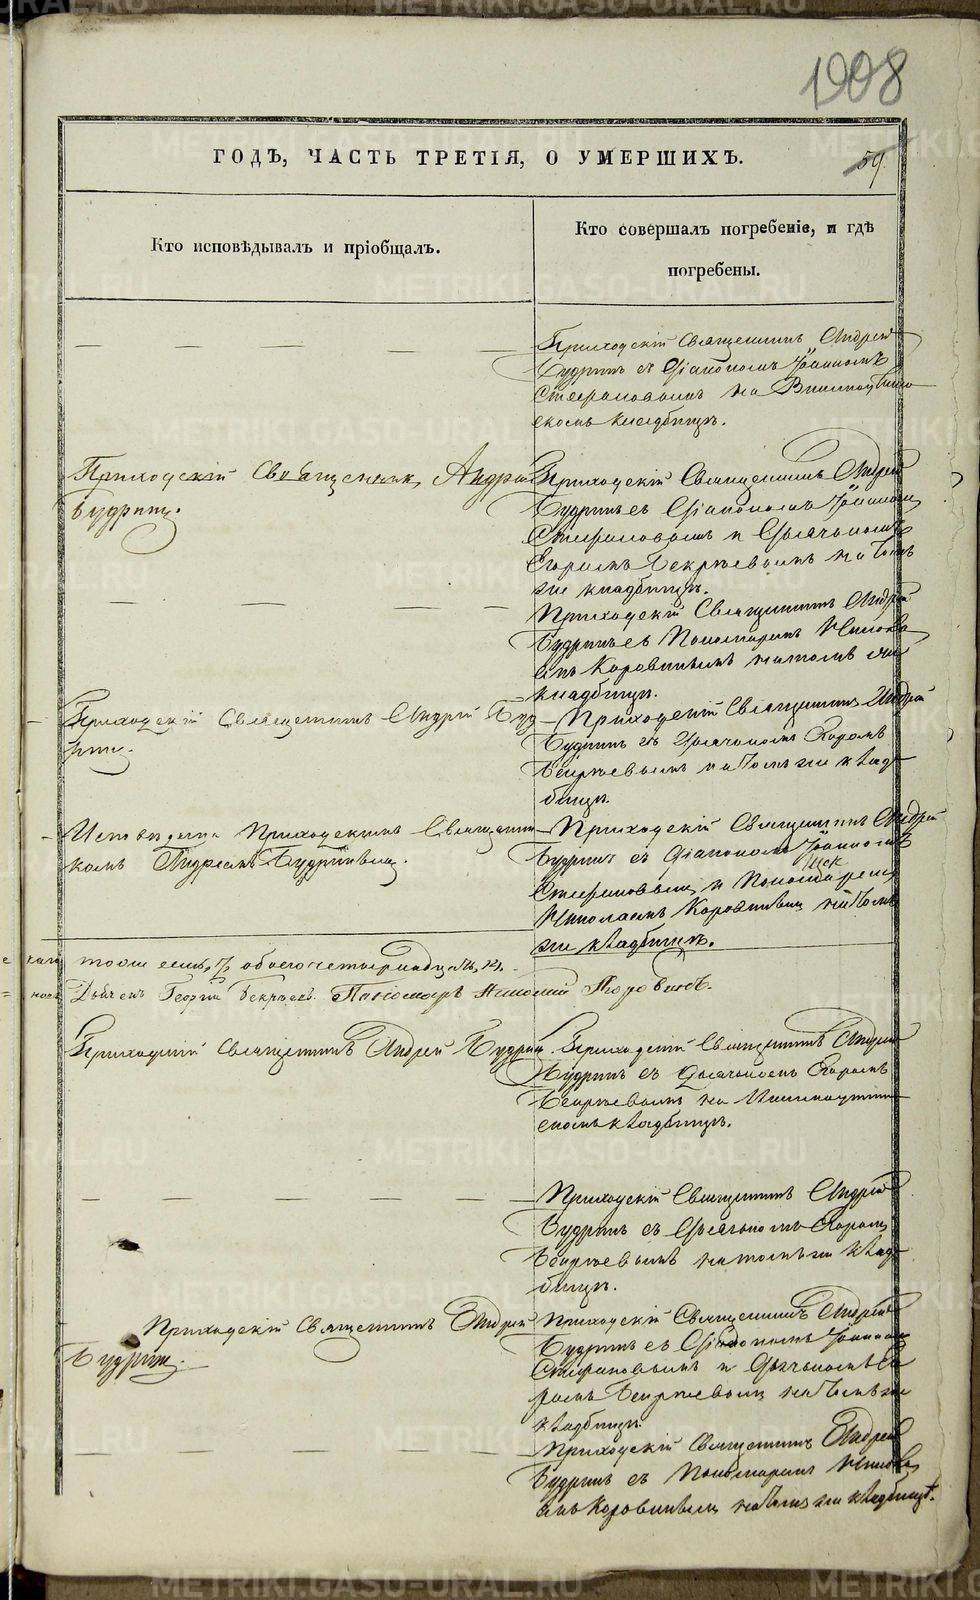 1908
ГОДЪ, ЧАСТЬ ТРЕТІЯ, О УМЕРШИХЪ.
59.
Кто исповѣдывалъ и пріобщалъ.
Кто совершалъ погребеніе, и гдѣ
погребены.
Приходскій Священникъ Андрей
Будринъ съ Діакономъ Іоанномъ
Стефановымъ на
скомъ кладбищѣ.
Приходскій Священникъ Андрей
Будринъ.
Приходскій Священникъ Андрей
Будринъ съ Діакономъ Іоанномъ
Стефановымъ и Дьячькомъ
Егоромъ на томъ
же кладбищѣ.
Приходскій Священникъ Андрей
Будринъ съ Пономаремъ Никола
емъ Коровинымъ на томъ же
кладбищѣ.
Приходскій Священникъ Андрей Буд
ринъ.
Приходскій Священникъ Андрей
Будринъ съ Дьячькомъ Егоромъ
на томъ же клад
бищѣ.
Исповѣданъ Приходскимъ Священни
комъ Андреемъ Будринымъ.
Приходскій Священникъ Андрей
Будринъ съ Діакономъ Іоанномъ
Стефановымъ и Пономаремъ
Николаемъ Коровинымъ на томъ
же кладбищѣ.
обоего четырнадцать
Георгій Пономарь Николай Коровинъ.
Приходскій Священникъ Андрей Будрин.
Приходскій Священникъ Андрей
Будринъ съ Дьячькомъ Егоромъ
на
скомъ кладбищѣ.
Приходскій Священникъ Андрей
Будринъ съ Дьячькомъ Егоромъ
на томъ же клад
бищѣ.
Приходскій Священникъ Андрей
Будринъ.
Приходскій Священникъ Андрей
Будринъ съ Діакономъ Іоанномъ
Стефановымъ и Дьячькомъ Его
ромъ на томъ же
кладбищѣ.
Приходскій Священникъ Андрей
Будринъ съ Пономаремъ Никола
емъ Коровинымъ на томъ же кладбищѣ.
METRIKI.GASO-URAL.RU